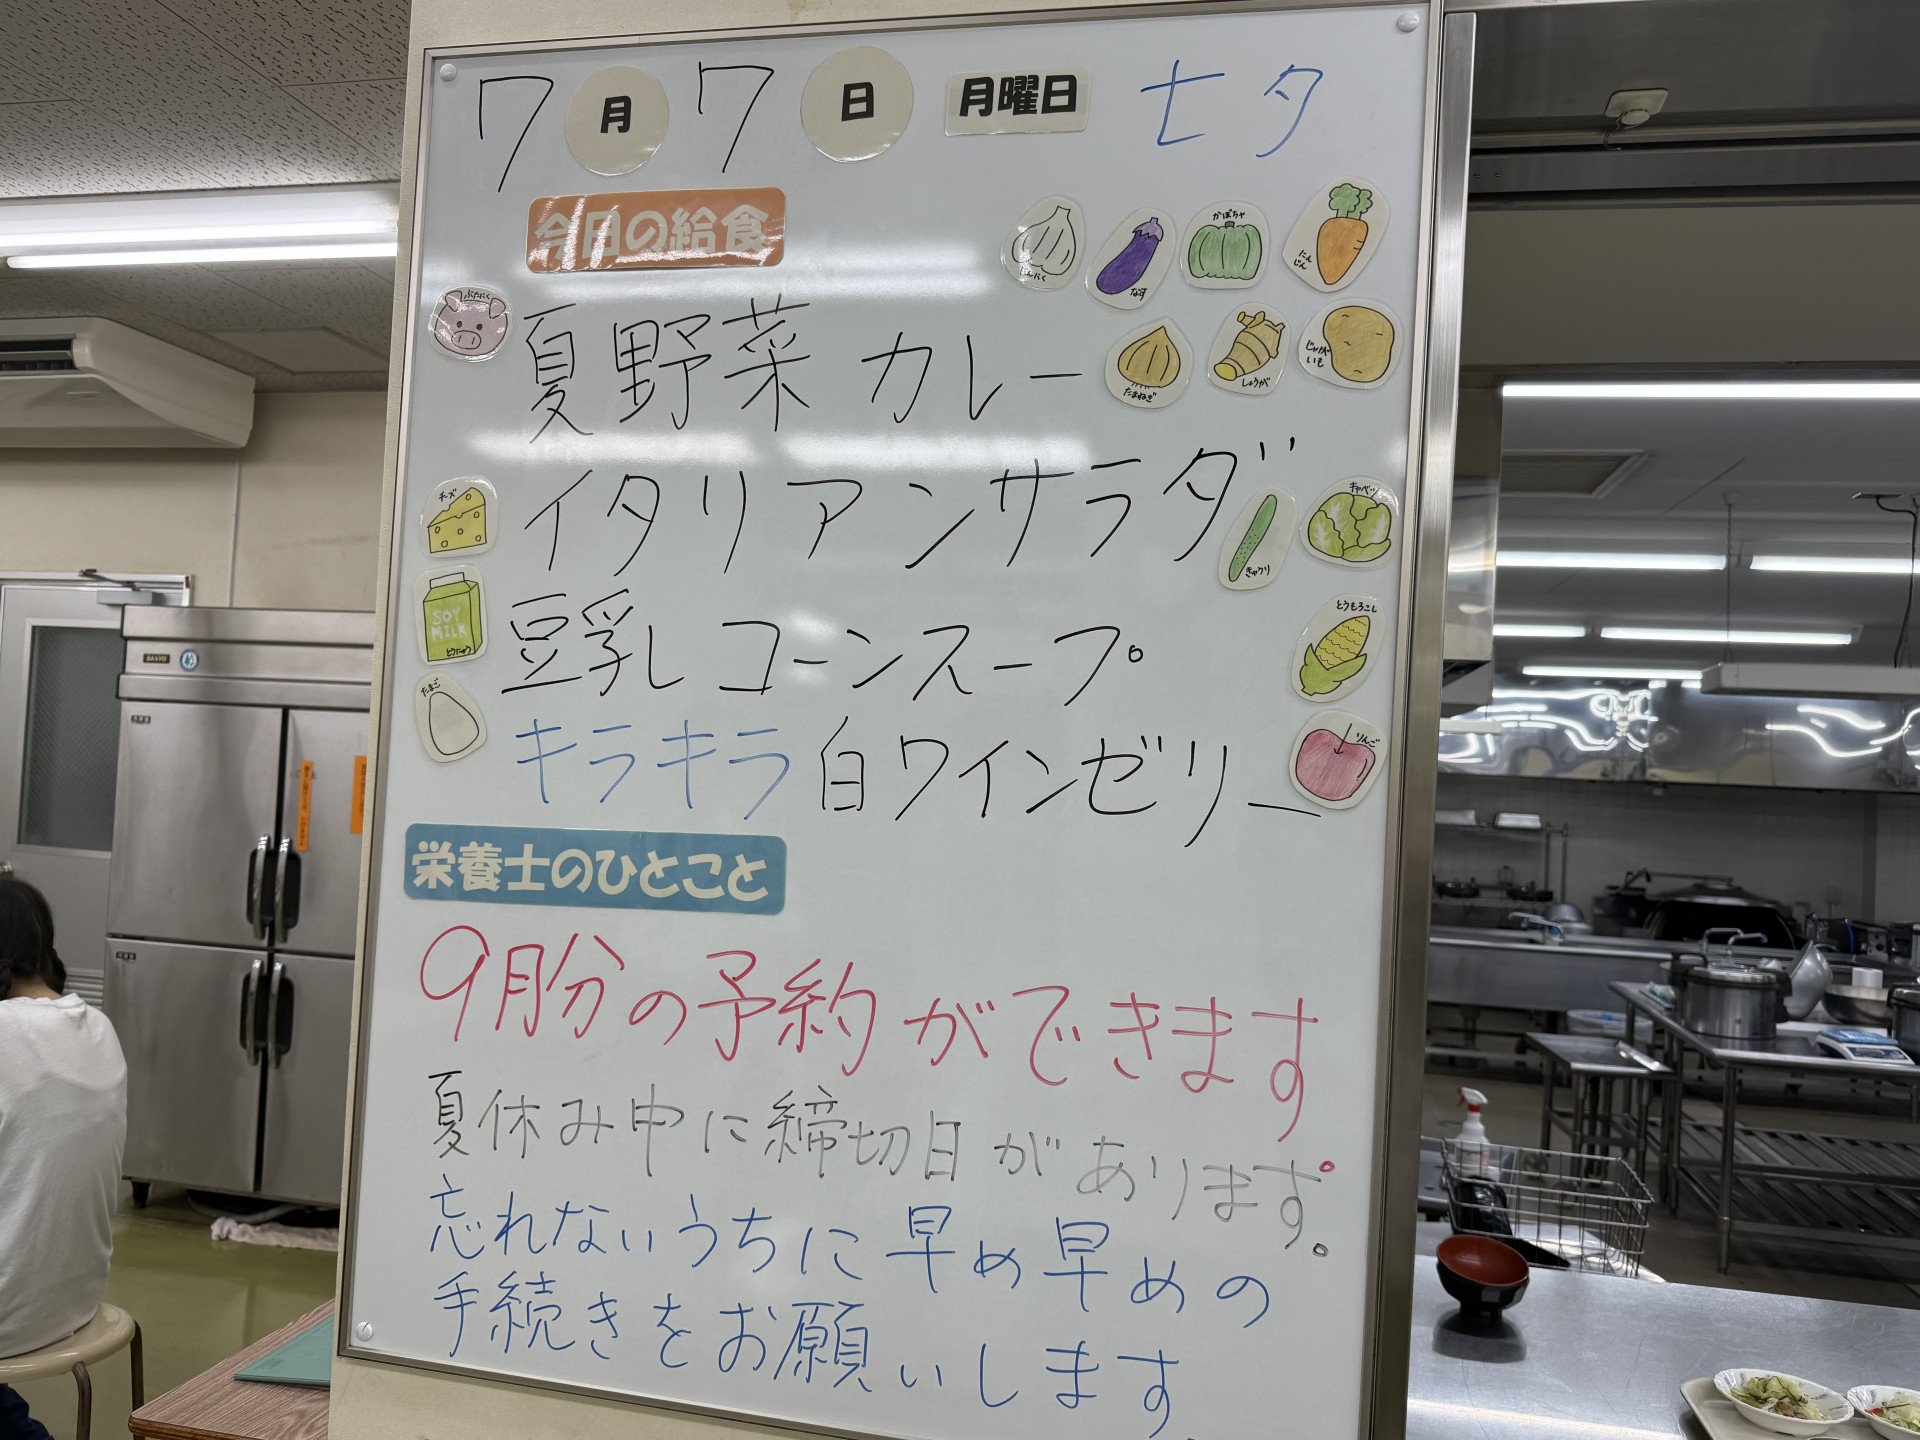 7月7日 月曜日 七夕
今日の給食
にんにく
なす
かぼちゃ
にんじん
ぶたにく
夏野菜カレー
たまねぎ
しょうが
じゃがいも
チーズ
イタリアンサラダ
きゅうり
キャベツ
SOY MILK
とうにゅう
豆乳コーンスープ
とうもろこし
たまご
キラキラ白ワインゼリー
りんご
栄養士のひとこと
9月分の予約ができます。
夏休み中に締切日があります。
忘れないうちに早め早めの
手続きをお願いします
SANYO